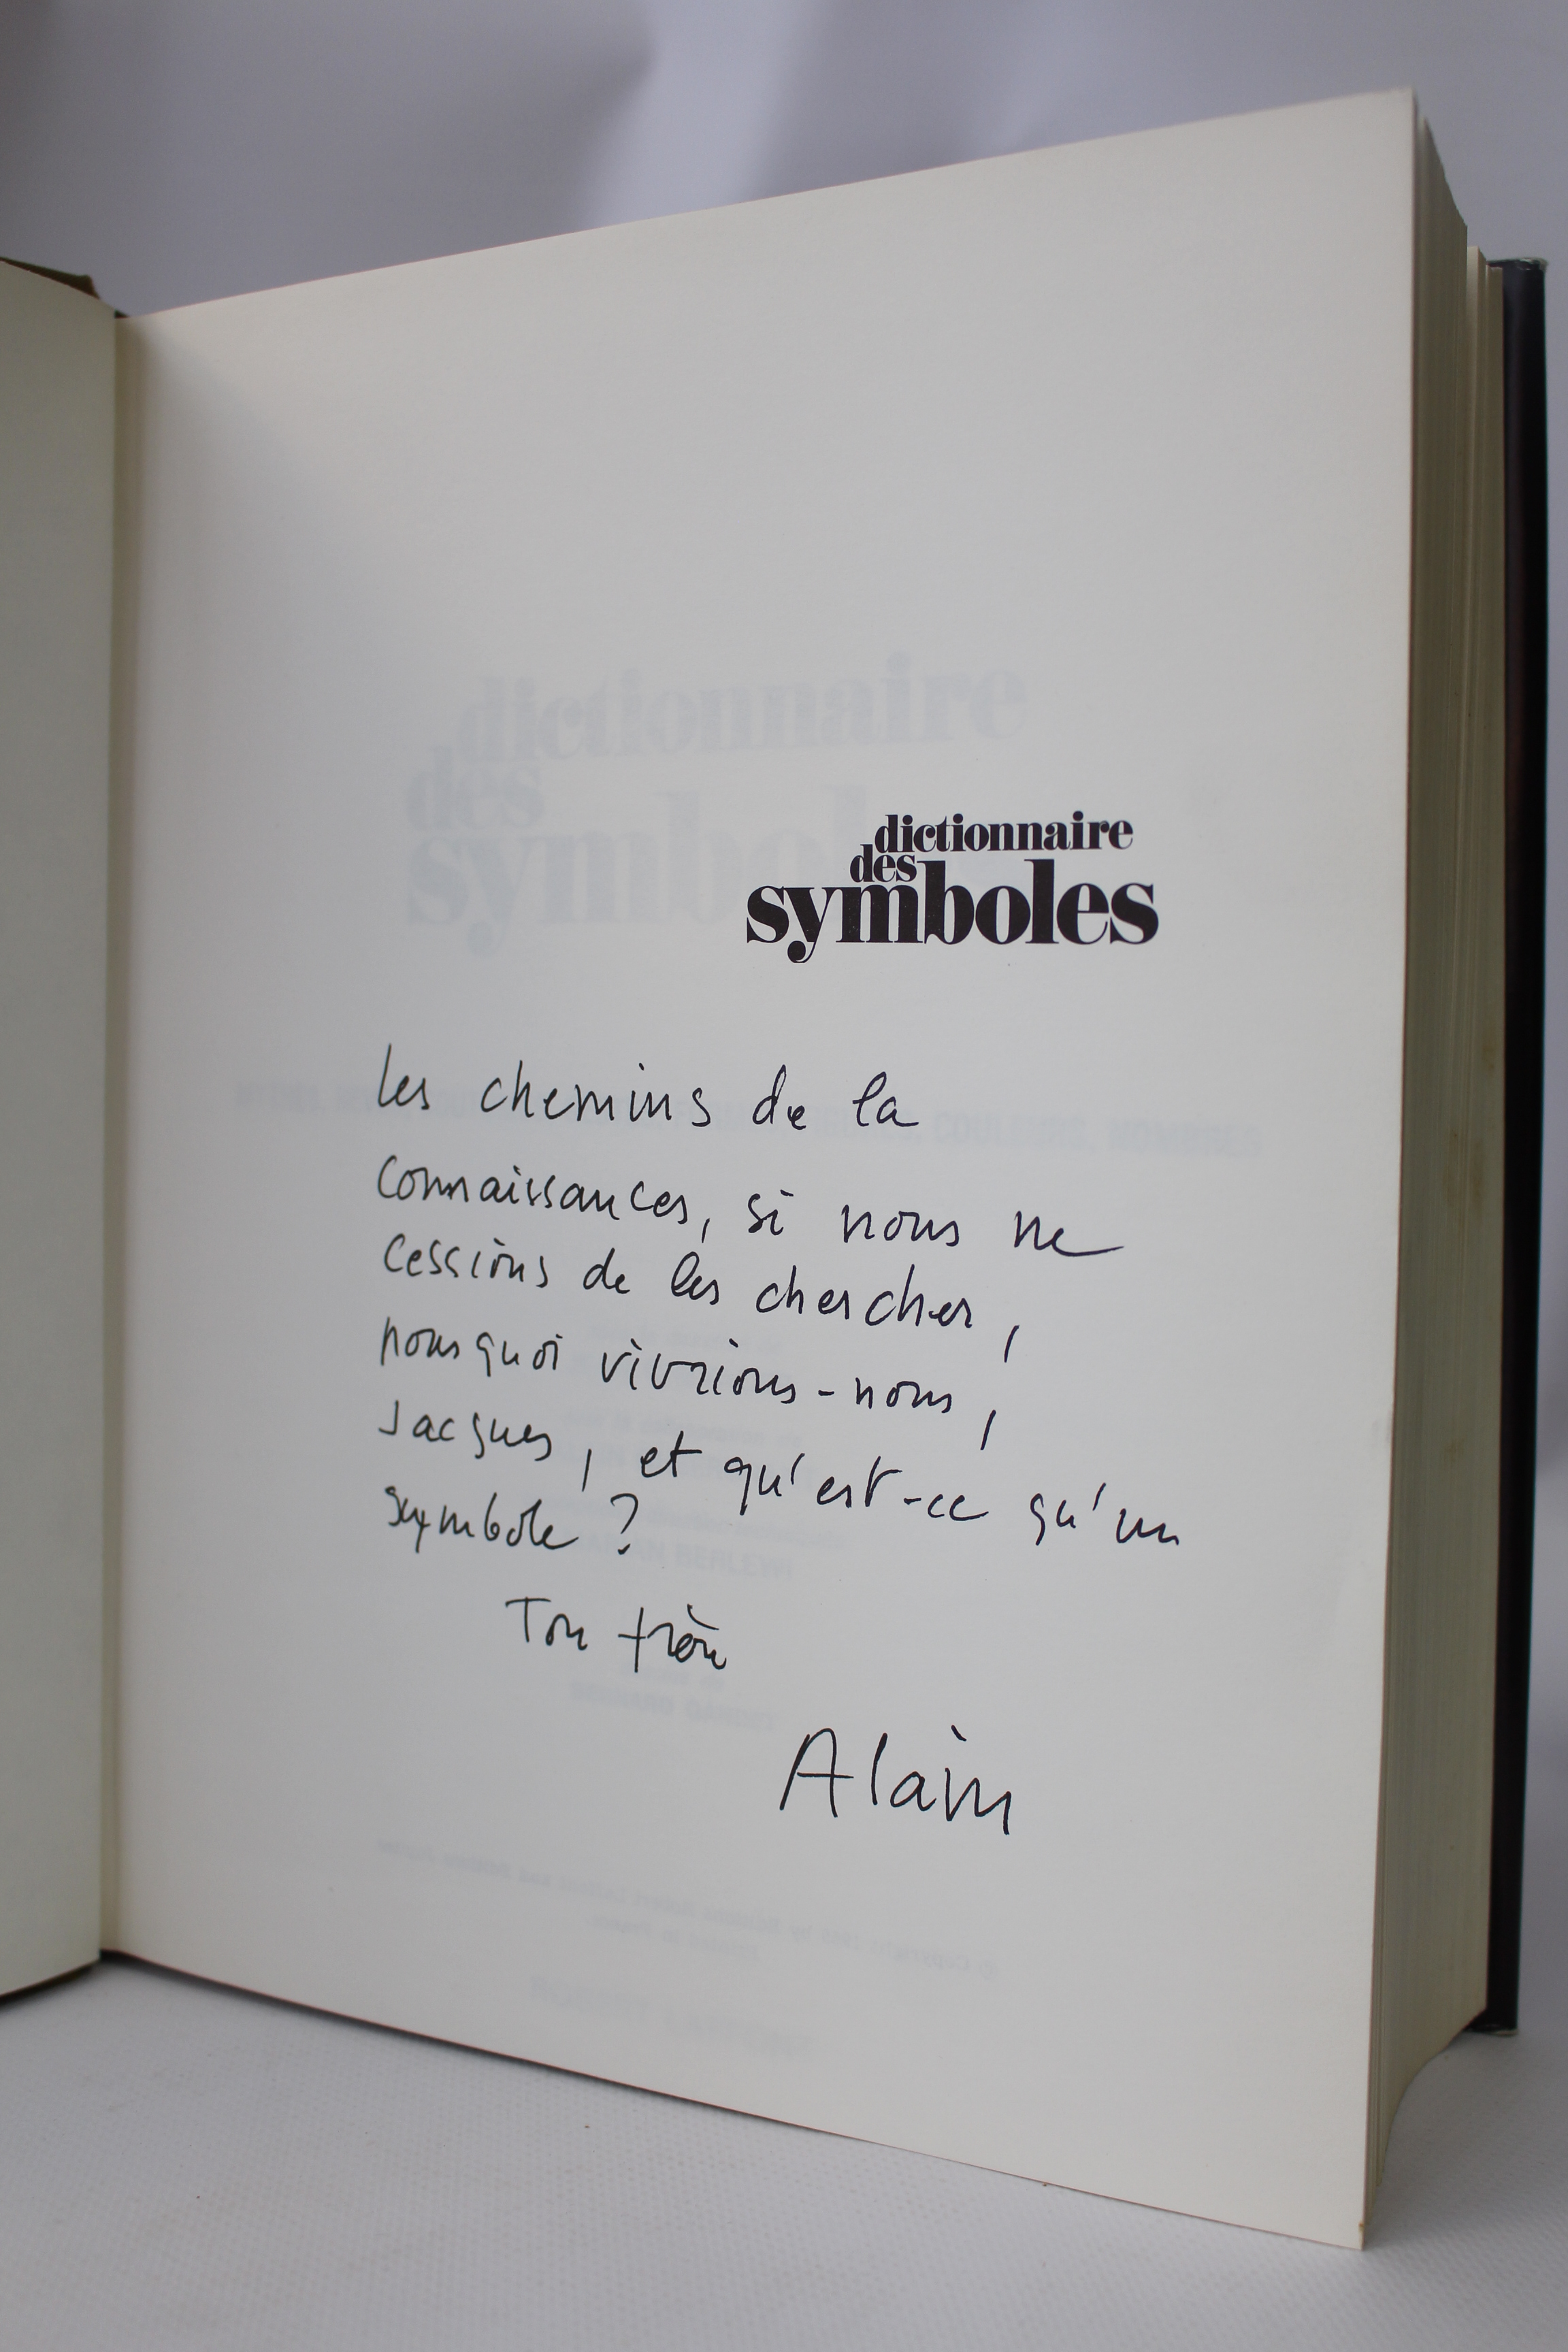 dictionnaire
des
symboles
les chemins de la
connaissances, si nous ne
cessions de les chercher,
pourquoi vivrions-nous,
Jacques, et qu'est-ce qu'un
symbole ?
Ton
Alain